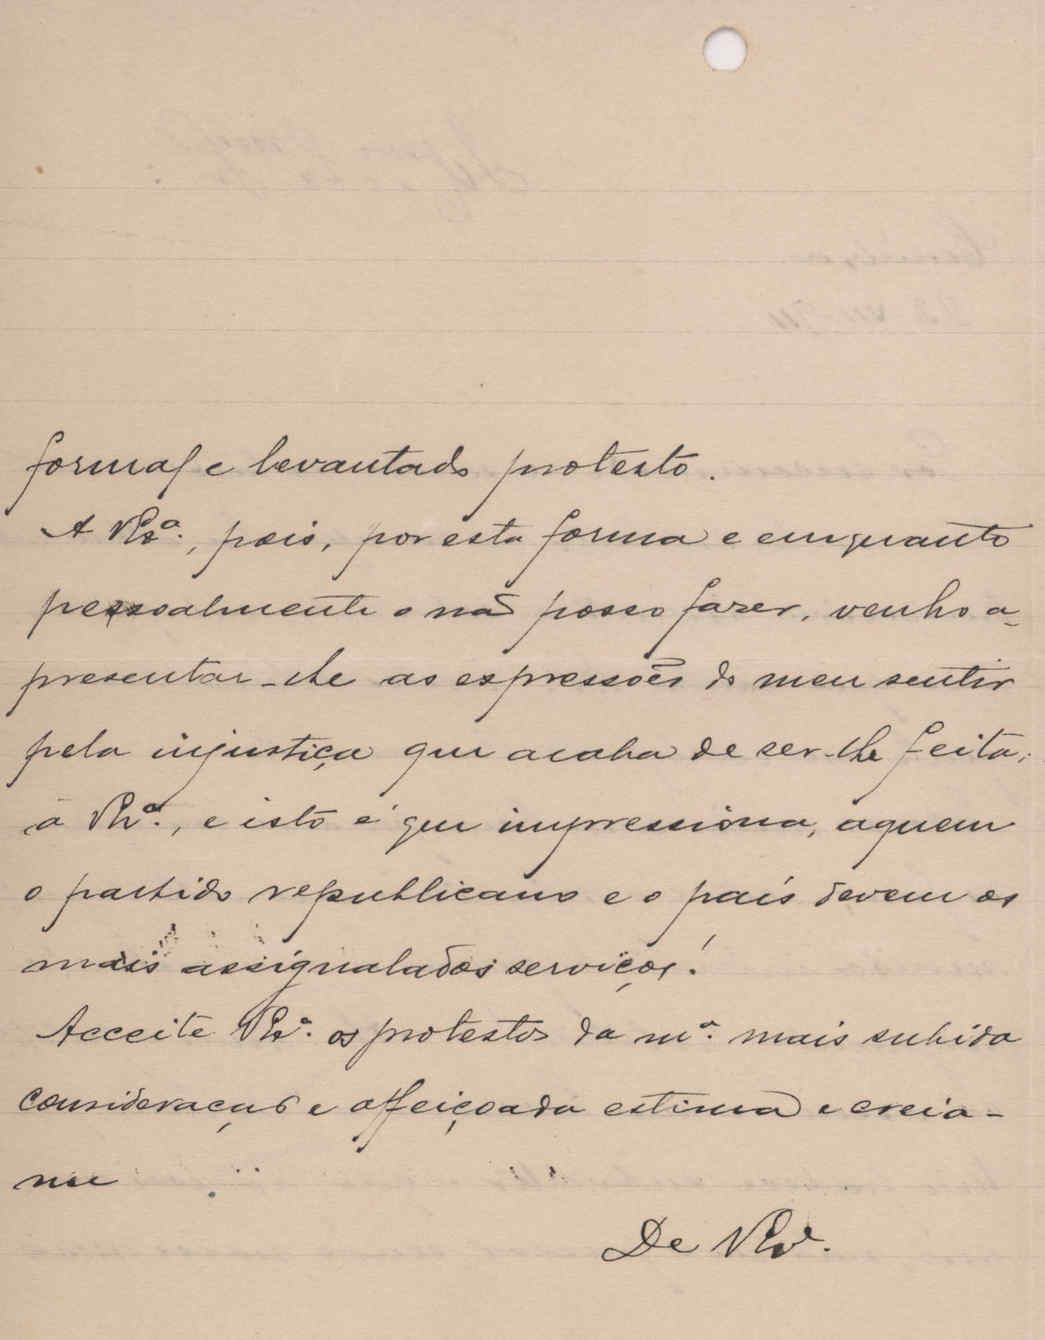 formal e levantado protesto.
A V. Ex.ª, pois, por esta forma e emquanto
pessoalmente o não posso fazer, venho a-
presentar-lhe as expressões do meu sentir
pela injustiça que acaba de ser-lhe feita,
a V. Ex.ª, e isto é que impressiona, a quem
o partido republicano e o país devem os
mais assignalados serviços!
Acceite V. Ex.ª os protestos da m.ª mais subida
consideração e affeiçoada estima e creia-
me
De V. Ex.ª